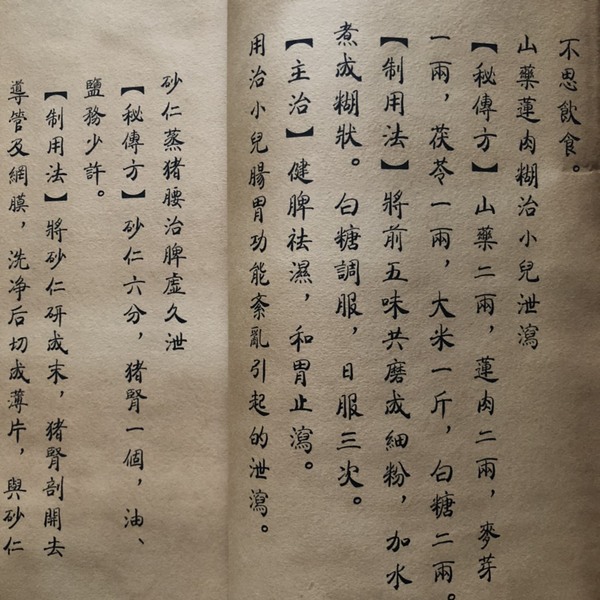 不思飲食。
山藥蓮肉糊治小兒泄瀉
【秘傳方】山藥二兩，蓮肉二兩，麥芽
一兩，茯苓一兩，大米一斤，白糖二兩。
【制用法】將前五味共磨成細粉，加水
煮成糊狀。白糖調服，日服三次。
【主治】健脾祛濕，和胃止瀉。
用治小兒腸胃功能紊亂引起的泄瀉。
砂仁蒸猪腰治脾虛久泄
【秘傳方】砂仁六分，猪腎一個，油、
鹽務少許。
【制用法】將砂仁研成末，猪腎剖開去
導管及網膜，洗净后切成薄片，與砂仁